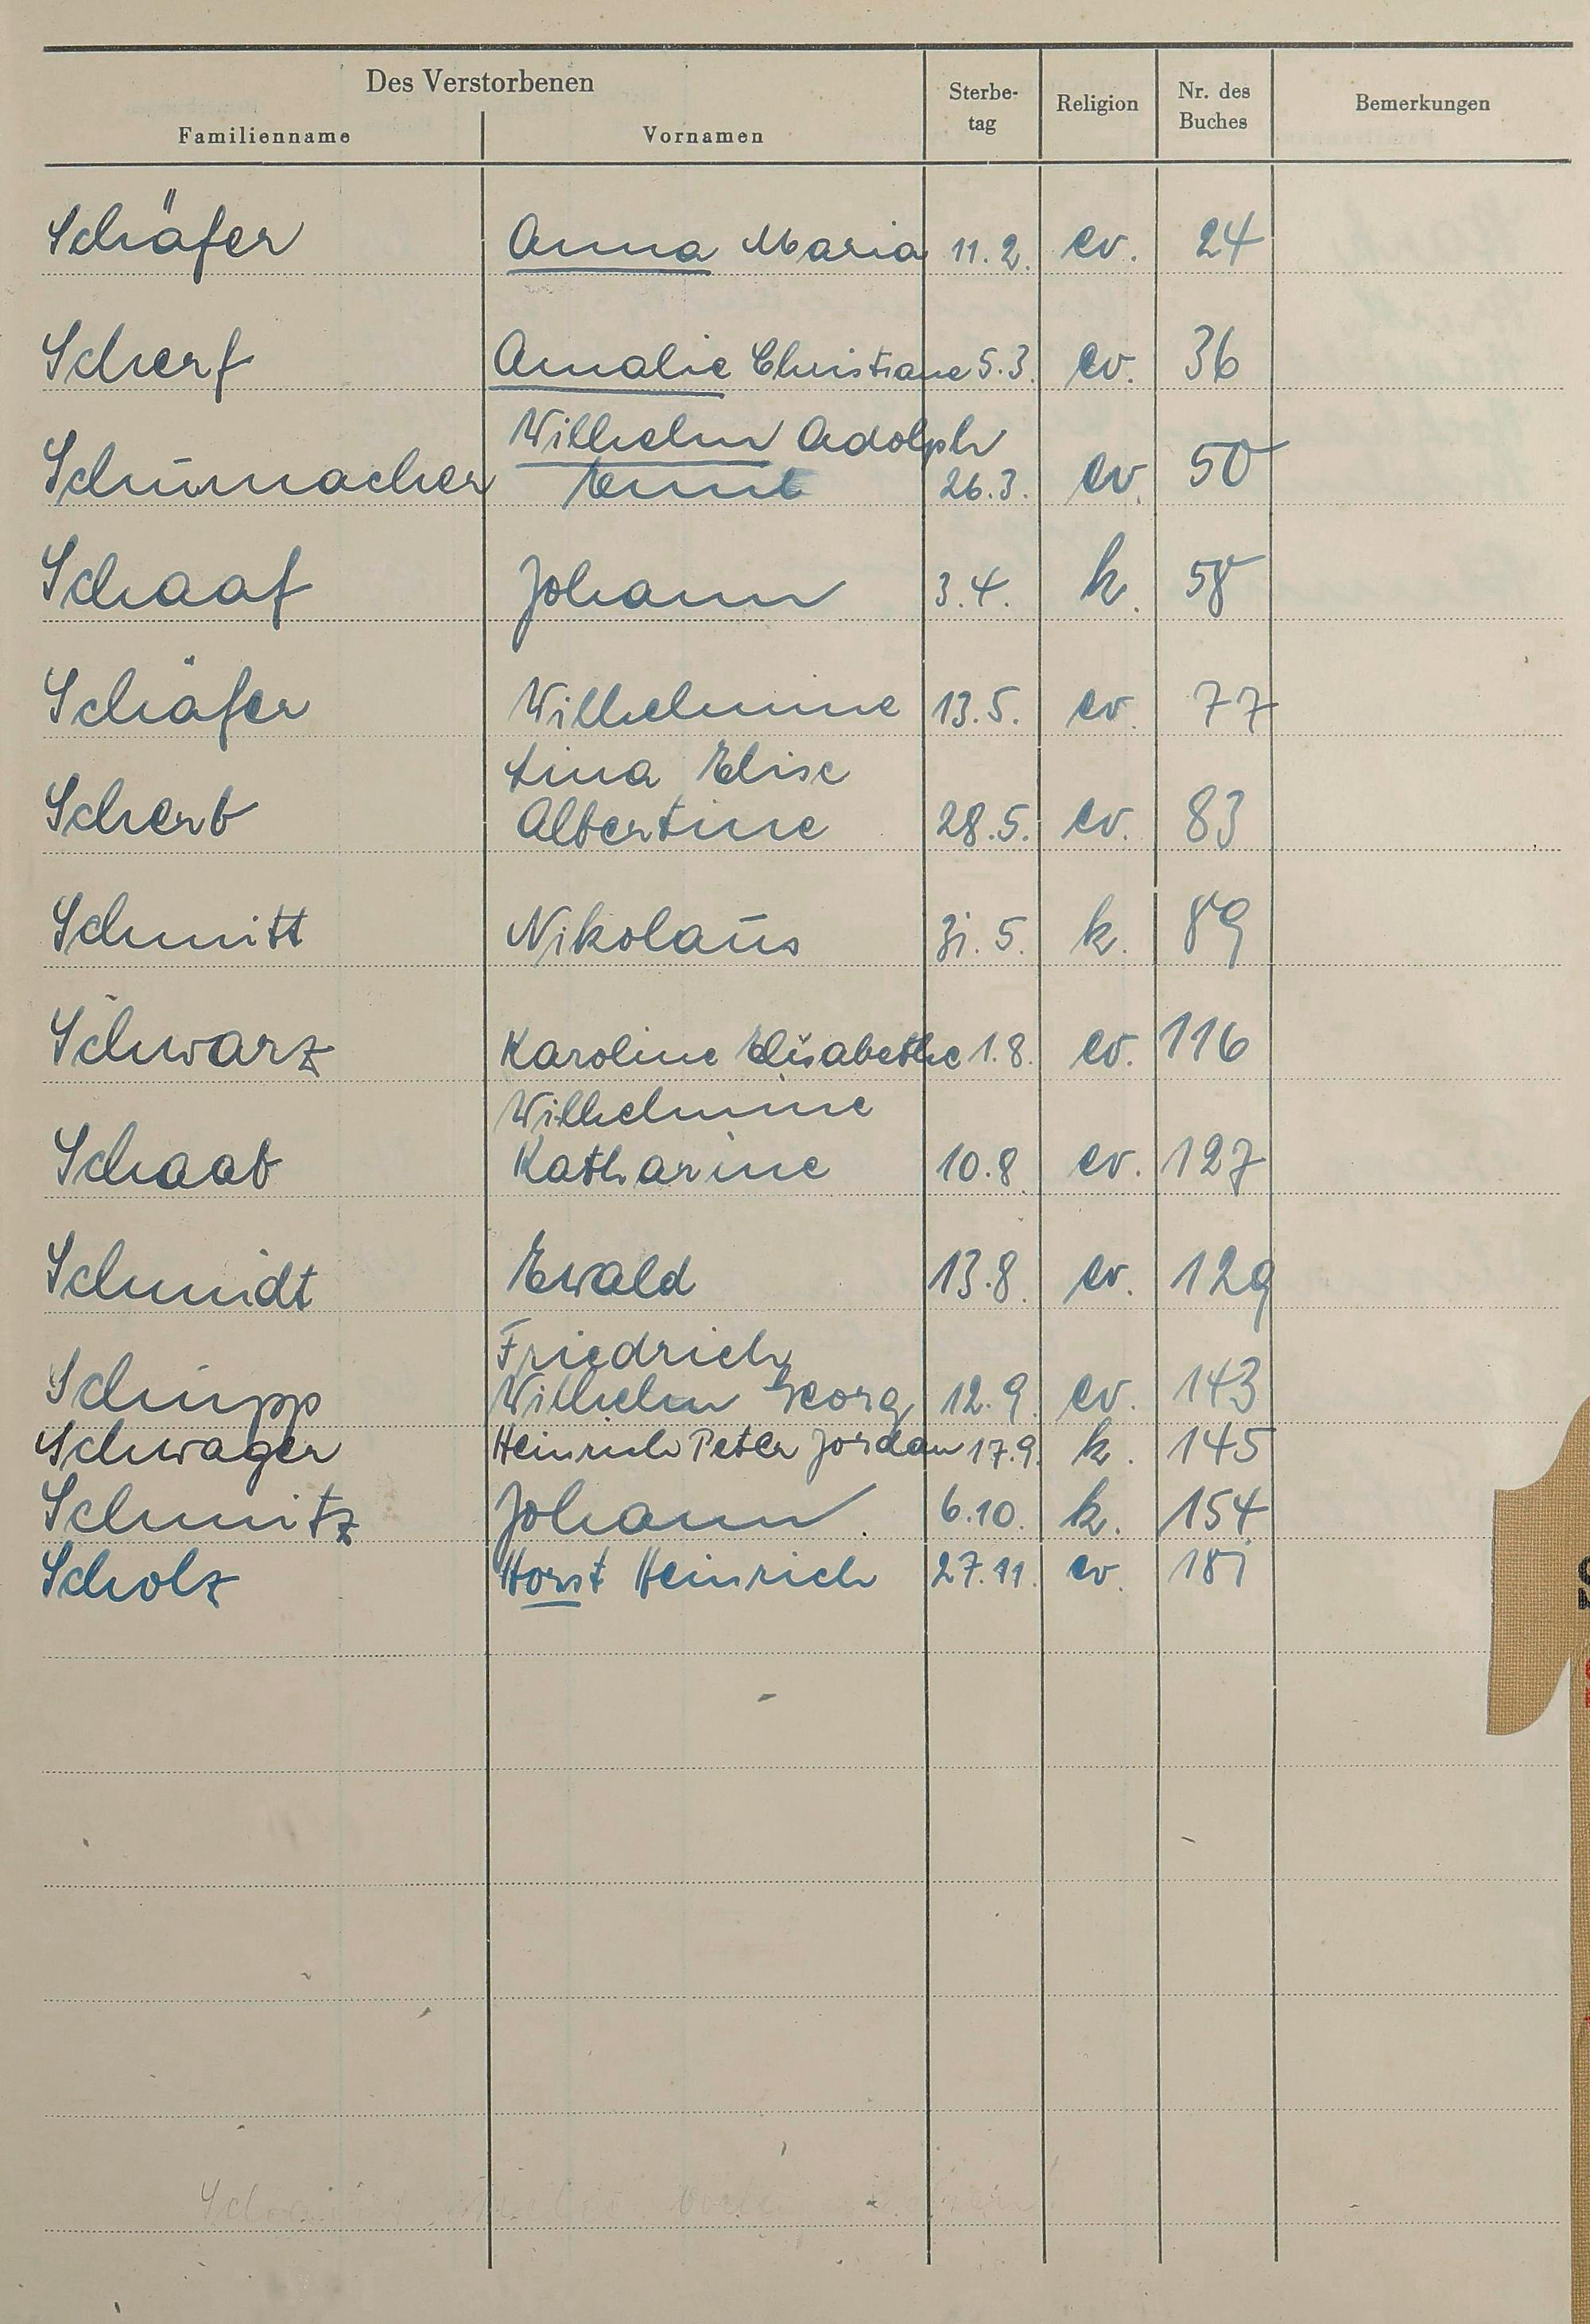 Des Verstorbenen
Familienname Vornamen Sterbe-tag Religion Nr. des Buches Bemerkungen
Schäfer Anna Maria 11.2. ev. 24
Scherf Amalie Christiane 5.3. ev. 36
Wilhelm Adolph
Schumacher Ernst 26.3. ev. 50
Schaaf Johann 3.4. k. 58
Schäfer Wilhelmine 13.5. ev. 77
Lina Elise
Scherb Albertine 28.5. ev. 83
Schmitt Nikolaus 31.5. k. 89
Schwarz Karoline Elisabethe 1.8. ev. 116
Wilhelmine
Schaab Katharine 10.8. ev. 127
Schmidt Ewald 13.8. ev. 129
Friedrich
Schupp Wilhelm Georg 12.9. ev. 143
Schwager Heinrich Peter Jordan 17.9. k. 145
Schmitz Johann. 6.10. k. 154
Scholz Horst Heinrich 27.11. ev. 181